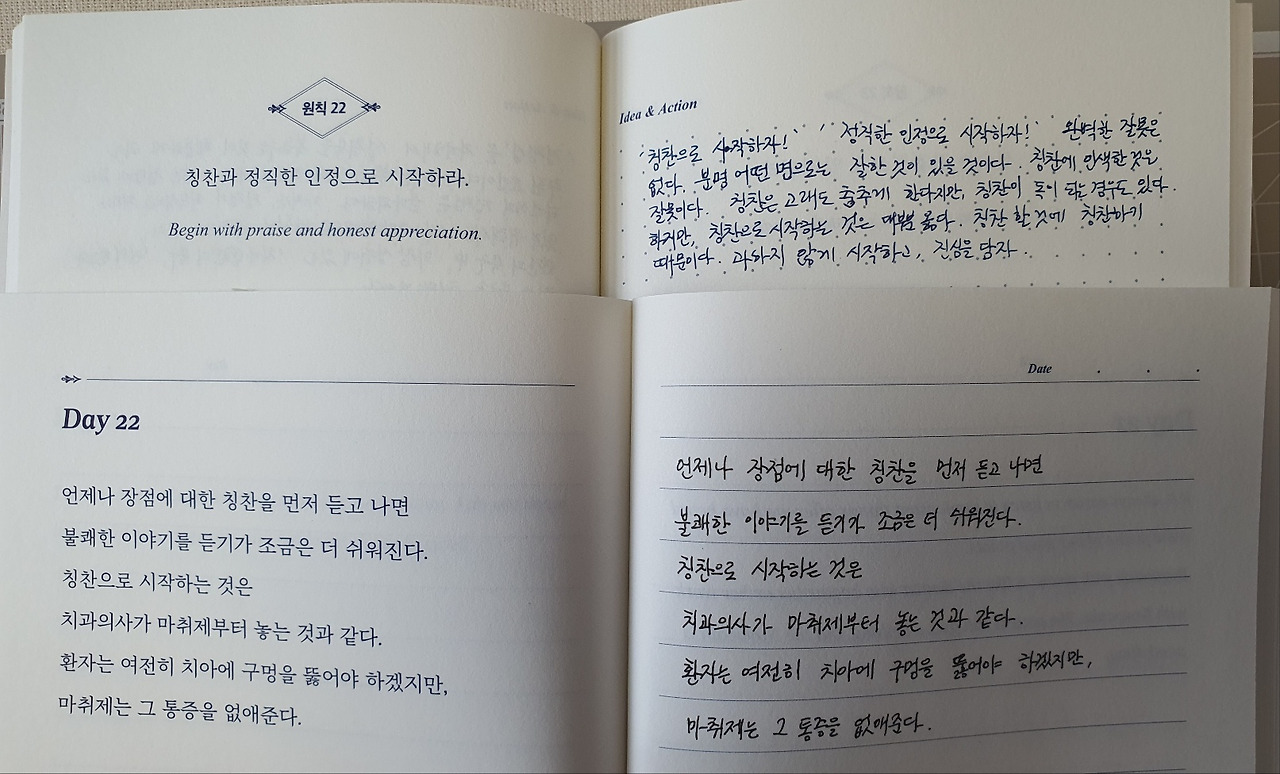 원칙 22
칭찬과 정직한 인정으로 시작하라.
Begin with praise and honest appreciation.
Idea & Action
'칭찬으로 시작하자!' '정직한 인정으로 시작하자!' 완벽한 잘못은
없다. 분명 어떤 면으로는 잘한 것이 있을 것이다. 칭찬에 인색한 것은
잘못이다. 칭찬은 고래도 춤추게 한다지만, 칭찬이 독이 되는 경우도 있다.
하지만, 칭찬으로 시작하는 것은 대부분 옳다. 칭찬 할 것에 칭찬하기
때문이다. 과하지 않게 시작하고, 진심을 담자.
Day 22
언제나 장점에 대한 칭찬을 먼저 듣고 나면
불쾌한 이야기를 듣기가 조금은 더 쉬워진다.
칭찬으로 시작하는 것은
치과의사가 마취제부터 놓는 것과 같다.
환자는 여전히 치아에 구멍을 뚫어야 하겠지만,
마취제는 그 통증을 없애준다.
Date . . .
언제나 장점에 대한 칭찬을 먼저 듣고 나면
불쾌한 이야기를 듣기가 조금은 더 쉬워진다.
칭찬으로 시작하는 것은
치과의사가 마취제부터 놓는 것과 같다.
환자는 여전히 치아에 구멍을 뚫어야 하겠지만,
마취제는 그 통증을 없애준다.